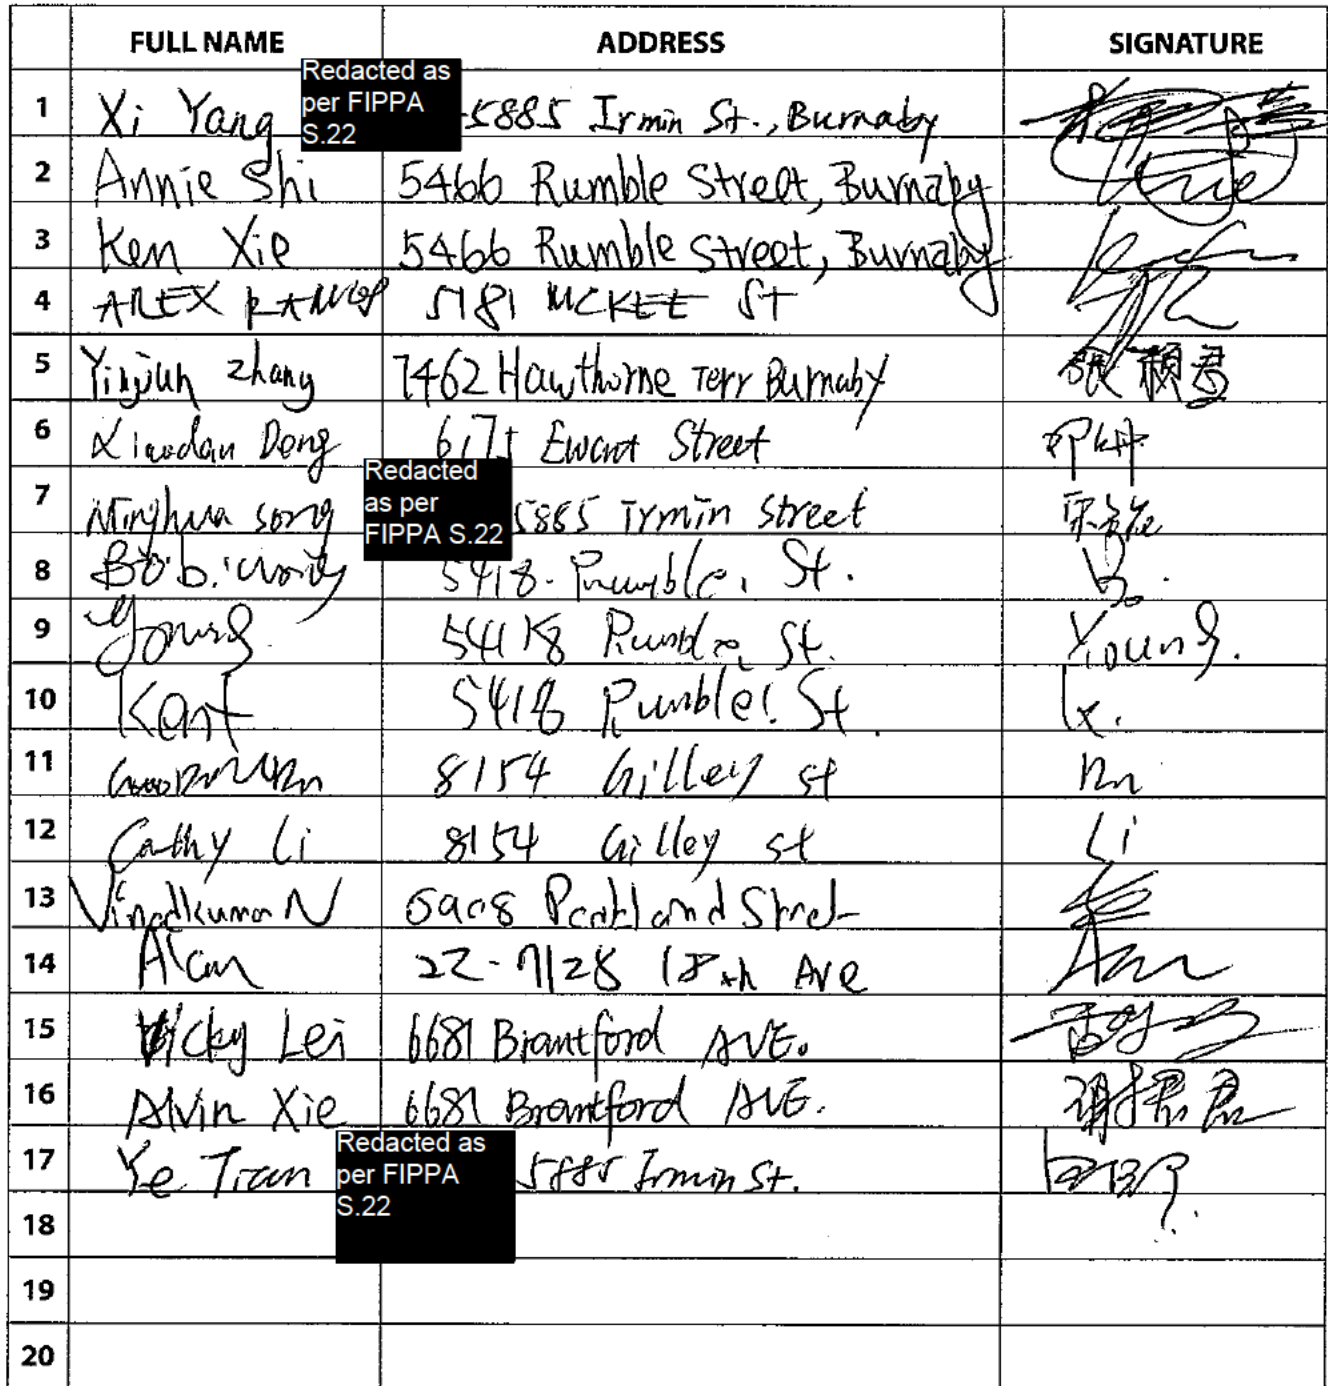 FULL NAME ADDRESS SIGNATURE
Redacted as
per FIPPA
S.22
1 Xi Yang -5885 Irmin St., Burnaby
2 Annie Shi 5466 Rumble Street, Burnaby
3 Ken Xie 5466 Rumble Street, Burnaby
4 ALEX 5181 MCKEE St
5 Yinjun zhang 7462 Hawthorne Terr Burnaby 张颖君
6 Xiaodan Deng 6175 Ewart Street
Redacted
as per
FIPPA S.22
7 Minghua song 5885 Irmin street
8 Bob. 5418. Rumble. St.
9 Young 5418 Rumble St. Young.
10 Kent 5418 Rumble. St K.
11 8154 Gilley st
12 Cathy Li 8154 Gilley st Li
13 Vinodkumar N
14 Alan 22-7128 18th Ave
15 Vicky Lei 6681 Brantford AVE.
16 Alvin Xie 6681 Brantford AVE.
Redacted as
per FIPPA
S.22
17 Ye Tian 5885 Irmin St.
18
19
20